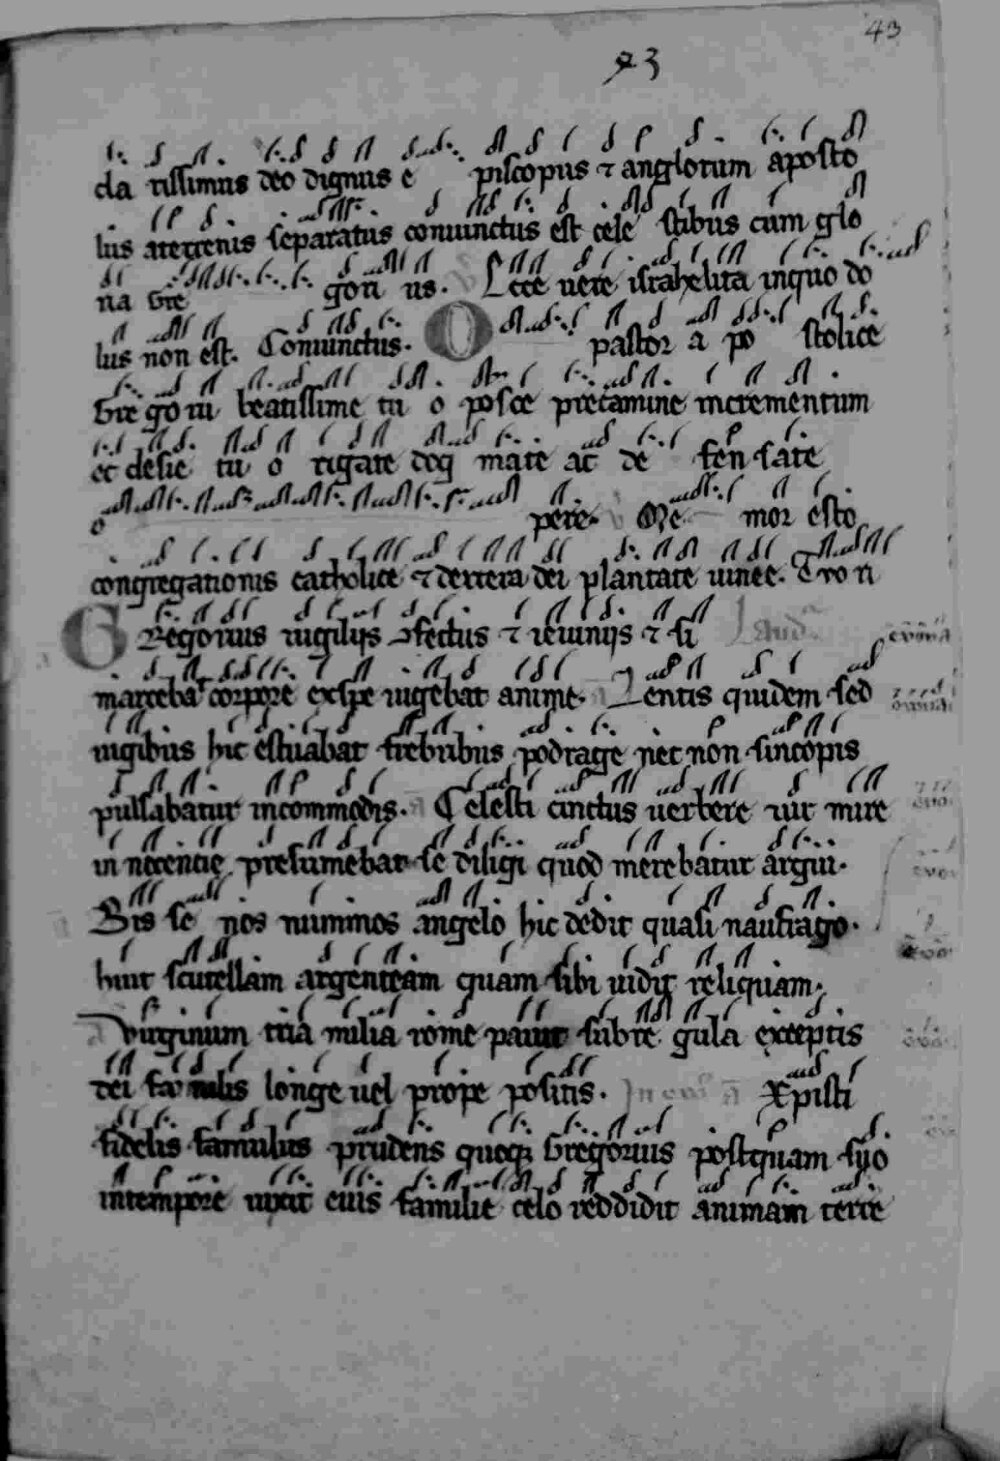 43
43
cla rissimus deo dignus e piscopus ⁊ anglorum aposto
lus a terrenis separatus coniunctus est cele stibus cum glo
ria Gre gori us. Ecce uere israhelita in quo do
lus non est. Coniunctus. O pastor a po stolice
Gre go rii beatissime tu o posce precamine incrementum
ecclesie tu o rigate dog mate ac de fen sate
o pere. Me mor esto
congregationis catholice ⁊ dextera dei plantate uinee.
Gregorius uigiliis ⁊ ieiuniis ⁊ si euoua
marcebat corpore ex spe uigebat anime. Lentis quidem sed
iugibus hic estuabat febribus podrage nec non sincopis
pulsabatur incommodis. Celesti cinctus uerbere uir mire
innocentie presumebat se diligi quod merebatur argui.
Bis se nos nummos angelo hic dedit quasi naufrago.
hinc scutellam argenteam quam sibi uidit reliquiam.
Virginum tria milia rome pauit sub re gula exceptis
dei fa mulis longe uel prope positis. Xpisti
fidelis famulus prudens quoq; Gregorius postquam suo
in tempore uixit eius familie celo reddidit animam terre